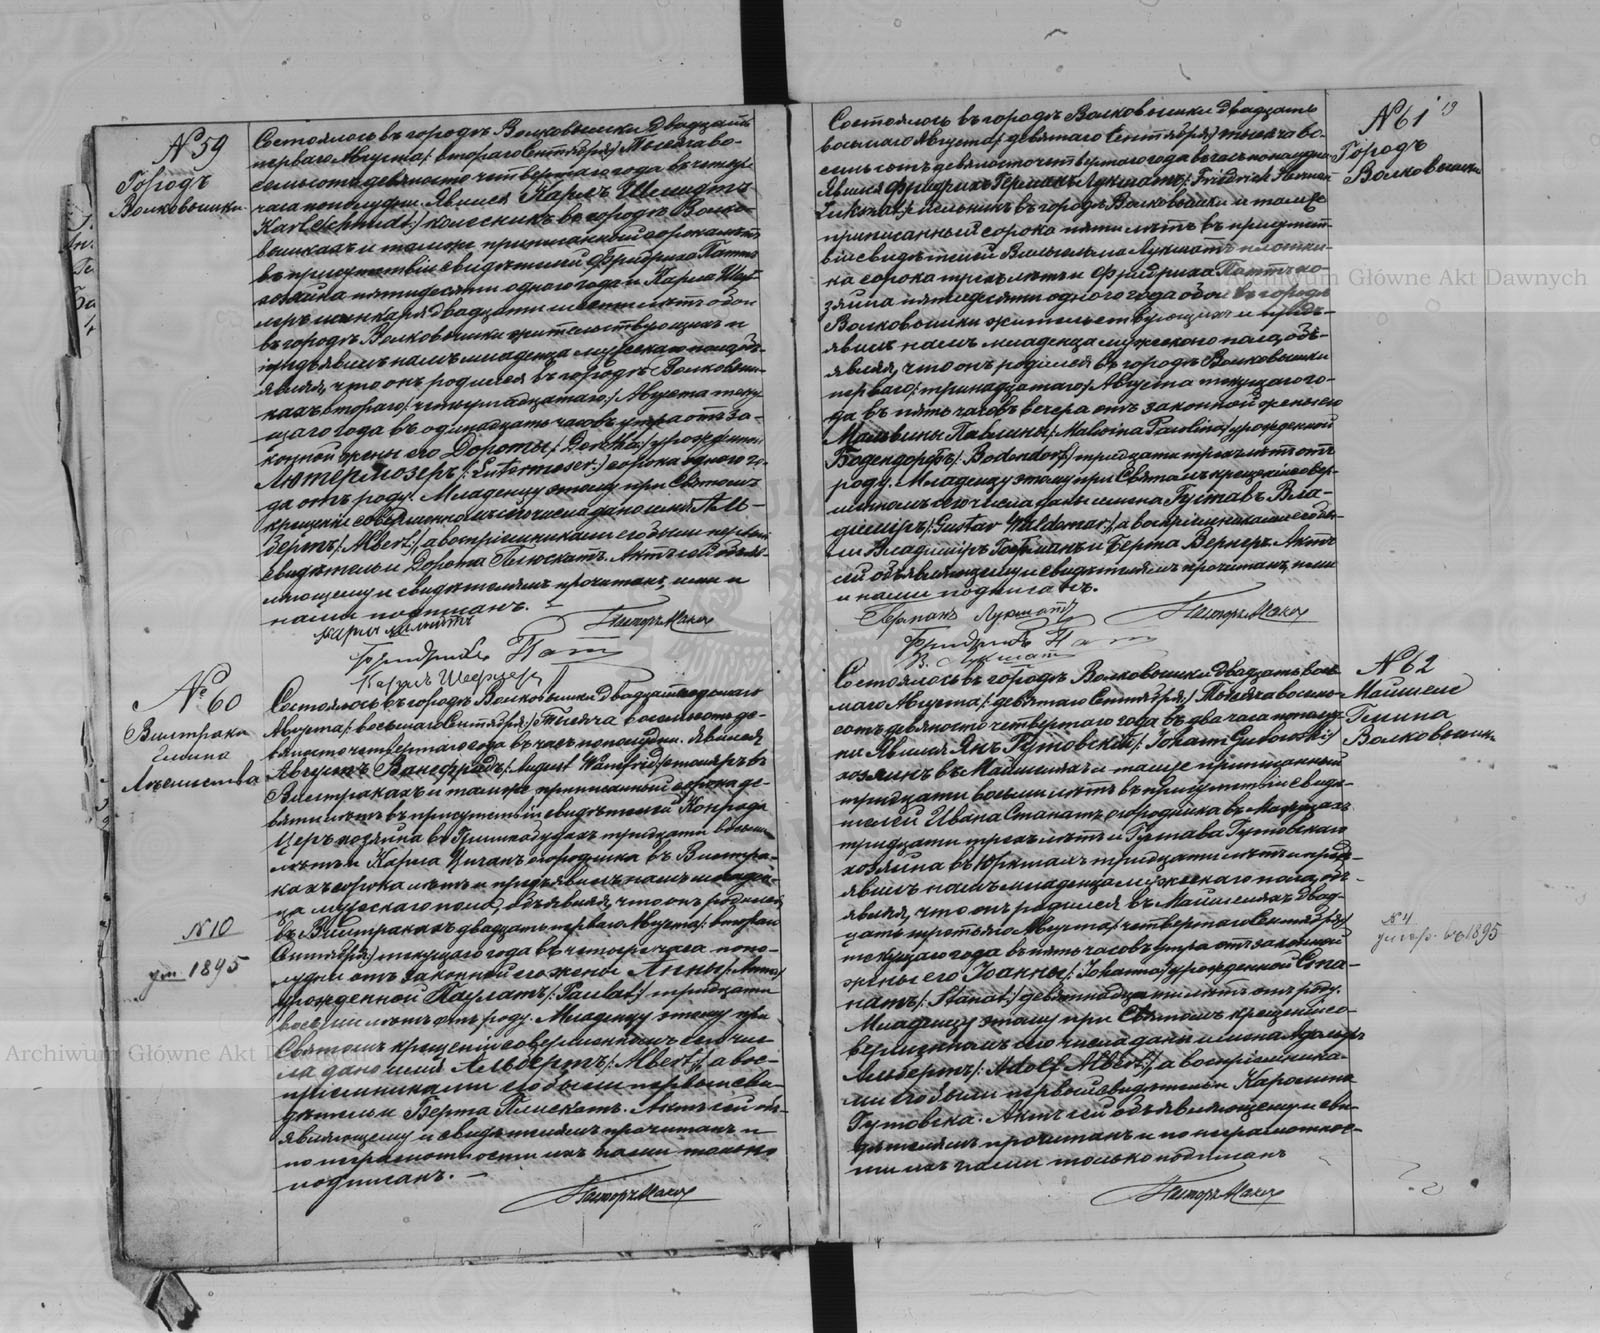 № 59
Городъ
Волковышки
Состоялось въ городѣ Волковышки двадцать
перваго Августа /: втораго Сентября :/ тысяча во-
семьсотъ девяносто четвертаго года въ четыре
часа пополудни. Явился Карлъ Шмидтъ
Karl Schmidt :/ колесникъ въ городѣ Волко-
вышкахъ и тамже приписанный сорока лѣтъ
въ присутствіи свидѣтелей Фридриха Патъ
хозяина пятидесяти одного года и Карла Шеф-
лера двадцати шести лѣтъ обои
въ городѣ Волковышки жительствующихъ и
предъявилъ намъ младенца мужескаго пола, объ-
являя, что онъ родился въ городѣ Волковыш-
кахъ втораго /: четырнадцатаго :/ Августа теку-
щаго года въ одинадцать часовъ утра отъ за-
конной жены его Дороты /: Dorothea :/ урожденной
Лютермозеръ /: Lutermoser :/ сорока одного го-
да отъ роду. Младенцу этому при Святомъ
крещеніи совершенномъ сего числа дано имя Аль-
бертъ /: Albert :/, а воспріемниками его были первый
свидѣтель и Дорота. Актъ сей объяв-
ляющему и свидѣтелямъ прочитанъ, ими и
нами подписанъ. —
Карлъ Шмитъ
Пасторъ
Фридрихъ Патъ
Карлъ Шефлеръ
№ 60
Вилтраки
Гмина
№ 10
ум. 1895
Состоялось въ городѣ Волковышки двадцать седьмаго
Августа /: восьмаго Сентября :/ Тысяча восемьсотъ де-
вяносто четвертаго года въ часъ пополудни. Явился
Августъ Ванефридъ /: August Wannfried :/ столяръ въ
Вилтракахъ и тамже приписанный сорока де-
вяти лѣтъ въ присутствіи свидѣтелей Конрада
Церъ хозяина въ тридцати восьми
лѣтъ и Карла Циганъ огородника въ Вилтра-
кахъ сорока лѣтъ и предъявилъ намъ младен-
ца мужескаго пола, объявляя, что онъ родился
въ Вилтракахъ двадцать перваго Августа /: втораго
Сентября :/ текущаго года въ четыре часа попо-
лудни отъ законной его жены Анны /: Anna :/
урожденной Паулатъ /: Paulat :/ тридцати
восьми лѣтъ отъ роду. Младенцу этому при
Святомъ крещеніи совершенномъ сего чис-
ла дано имя Альбертъ /: Albert :/, а вос-
пріемниками его были первый сви-
дѣтель и Берта Плискатъ. Актъ сей объ-
являющему и свидѣтелямъ прочитанъ и
по неграмотности ихъ нами только
подписанъ. —
Пасторъ
19
№ 61
Городъ
Волковышки
Состоялось въ городѣ Волковышки двадцать
восьмаго Августа /: девятаго Сентября :/ тысяча во-
семьсотъ девяносто четвертаго года въ часъ пополудни
Явился Фридрихъ Германъ Лукшатъ /: Friedrich Herman
Lukschat :/ мельникъ въ городѣ Волковышки и тамже
приписанный сорока пяти лѣтъ въ присутст-
віи свидѣтелей Вильгельма Лукшатъ плотни-
ка сорока трехъ лѣтъ и Фридриха Патъ хо-
зяина пятидесяти одного года обои въ городѣ
Волковышки жительствующихъ и предъ-
явилъ намъ младенца мужескаго пола, объ-
являя, что онъ родился въ городѣ Волковышки
перваго /: тринадцатаго :/ Августа текущаго го-
да въ пять часовъ вечера отъ законной жены его
Мальвины Паулины /: Malwina Paulina :/ урожденной
Бодендорфъ /: Bodendorf :/ тридцати трехъ лѣтъ отъ
роду. Младенцу этому при Святомъ крещеніи совер-
шенномъ сего числа даны имена Густавъ Вла-
диміръ /: Gustav Waldemar :/, а воспріемниками его бы-
ли Владиміръ Гофманъ и Берта Вернеръ. Актъ
сей объявляющему и свидѣтелямъ прочитанъ, ими
и нами подписанъ.
Германъ Лукшатъ
Пасторъ
Фридрихъ Патъ
В. Лукшатъ
№ 62
Гмина
Волковышки
№ 4
умер. въ 1895
Состоялось въ городѣ Волковышки двадцать вось-
маго Августа /: девятаго Сентября :/ Тысяча восемь-
сотъ девяносто четвертаго года въ два часа пополуд-
ни Явился Янъ Гутовскій /: Johann Gutowski :/
хозяинъ въ и тамже приписанный
тридцати восьми лѣтъ въ присутствіи свидѣ-
телей Ивана Станатъ огородника въ
тридцати трехъ лѣтъ и Густава Гутовскаго
хозяина въ тридцати лѣтъ и предъ-
явилъ намъ младенца мужескаго пола, объ-
являя, что онъ родился въ двад-
цать третьяго Августа /: четвертаго Сентября :/
текущаго года въ пять часовъ утра отъ законной
жены его Іоанны /: Johanna :/ урожденной Ста-
натъ /: Stanat :/ девятнадцати лѣтъ отъ роду.
Младенцу этому при Святомъ крещеніи со-
вершенномъ сего числа даны имена Адольфъ
Альбертъ /: Adolf Albert :/, а воспріемника-
ми его были первый свидѣтель и Каролина
Гутовска. Актъ сей объявляющему и сви-
дѣтелямъ прочитанъ и по неграмотнос-
ти ихъ нами только подписанъ
Пасторъ
Archiwum Główne Akt Dawnych
Archiwum Główne Akt Dawnych